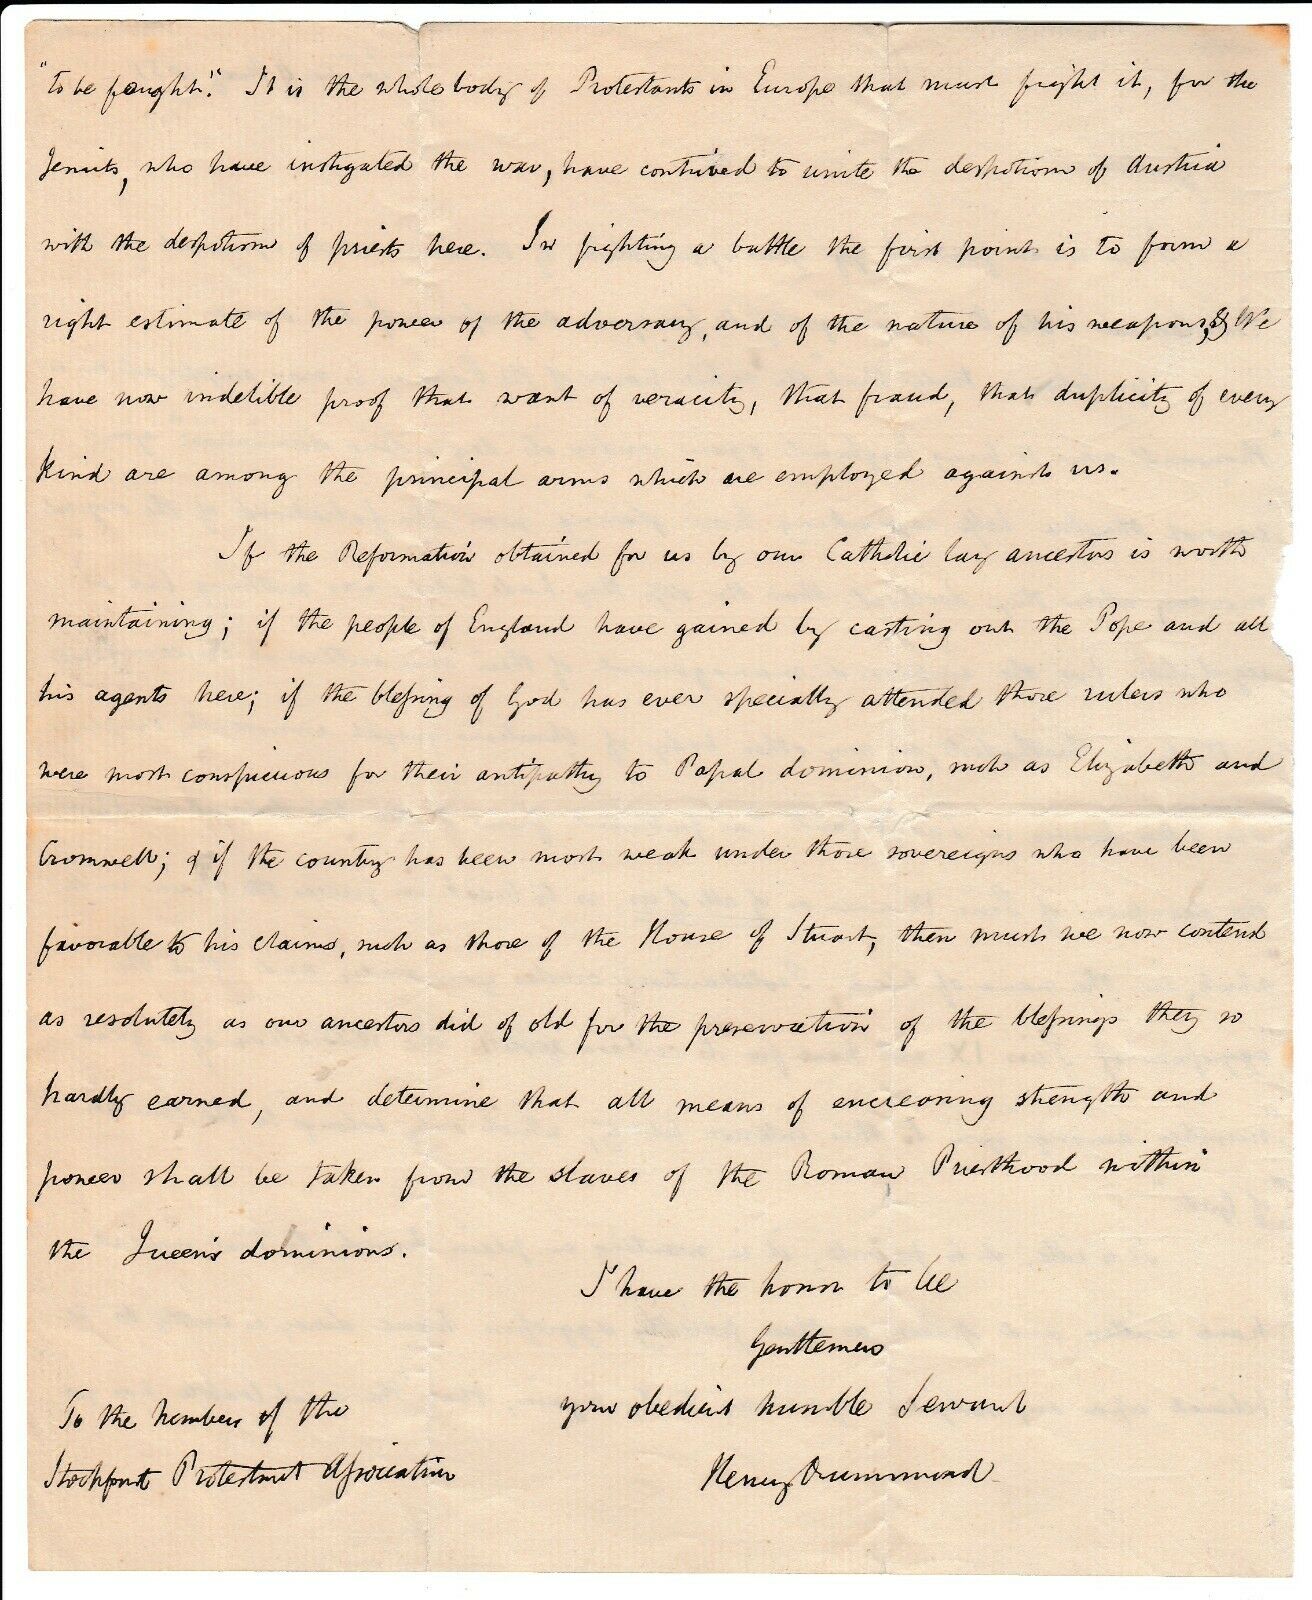 "to be fought." It is the whole body of Protestants in Europe that must fight it, for the
Jesuits, who have instigated the war, have contrived to unite the despotism of Austria
with the despotism of priests here. In fighting a battle the first point is to form a
right estimate of the power of the adversary, and of the nature of his weapons, We
have now indelible proof that want of veracity, that fraud, that duplicity of every
kind are among the principal arms which are employed against us.
If the Reformation obtained for us by our Catholic lay ancestors is worth
maintaining; if the people of England have gained by casting out the Pope and all
his agents here; if the blessing of God has ever specially attended those rulers who
were most conspicuous for their antipathy to Papal dominion, such as Elizabeth and
Cromwell; & if the country has been most weak under those sovereigns who have been
favorable to his claims, such as those of the House of Stuart, then must we now contend
as resolutely as our ancestors did of old for the preservation of the blessings they so
hardly earned, and determine that all means of encreasing strength and
power shall be taken from the slaves of the Roman Priesthood within
the Queen's dominions.
I have the honor to be
Gentlemen
your obedient humble Servant
Henry Drummond
To the Members of the
Stockport Protestant Association